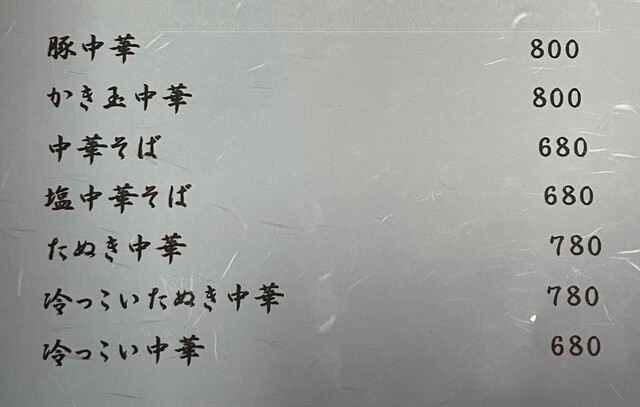 豚中華 800
かき玉中華 800
中華そば 680
塩中華そば 680
たぬき中華 780
冷っこいたぬき中華 780
冷っこい中華 680